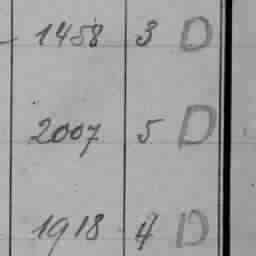 1458 3 D
2007 5 D
1918 4 D